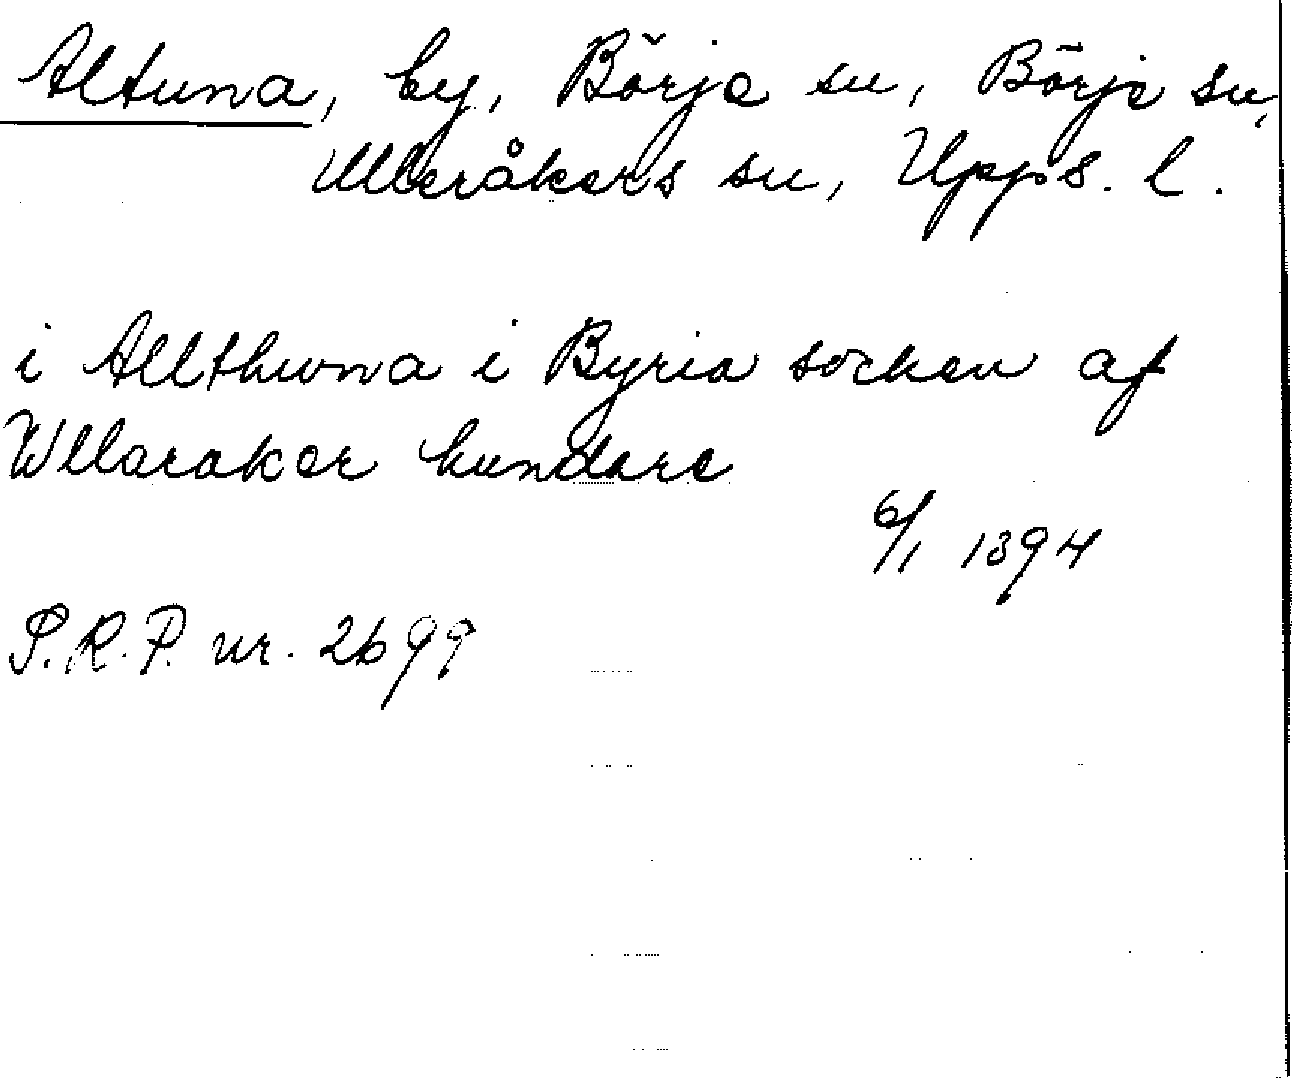 Altuna, by, Börje sn, Börje sn,
Ulleråkers sn, Upps. l.
i Allthwna i Byria socken af
Wllaraker hundare
6/1 1394
S.R.P. nr. 2699